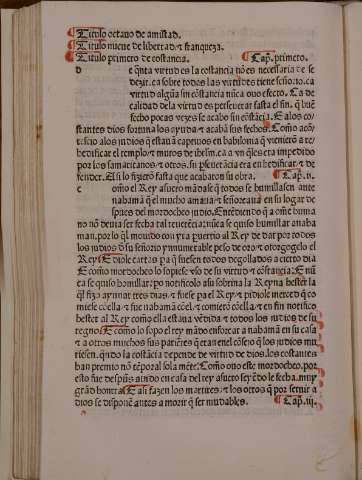 ¶ Titulo octauo de amistad.
¶ Titulo nueue de libertad ⁊ franqueza.
¶ Titulo primero de costancia. ¶ Cap. primero.
d e q̃nta virtud es la costancia nõ es necesaria de se
dezir. ca sobre todas las virtudes tiene señorio. ca
virtud algũa sin cõstancia nũca ouo efecto. Ca de
calidad dela virtud es perseuerar fasta el fin. q̃ biẽ
fecho pocas vezes se acabo sin cõstãcia. E alos cõ
stantes dios fortuna los ayuda ⁊ acaba sus fechos. Como acõ
tescio alos judios q̃ estauã captiuos en babilonia q̃ viniero a re
hedificar el templo ⁊ muros de
por los samaritanos ⁊ otros. su p̃seuerãcia era en hedificar ⁊ de
fender. El si lo fizierõ fasta que acabaron su obra. ¶ Cap. ij.
c omo el Rey asuero mãdase q̃ todos se humillasen ante
nabamã que mucho amaua ⁊ señoreaua en su logar de
spues del mordocheo judio. Entẽdiendo q̃ a om̃e huma
no nõ deuia ser fecha tal reuerẽcia: nũca se quiso humillar anaba
man. por lo q̃l mouido con yra puertio al Rey de dar por todos
los judios de su señorio ynnumerable peso de oro ⁊ otorgogelo el
Rey ¶ E diole cartas pa q̃ fuesen todos degollados a cierto dia
E como mordocheo lo sopiese vso de su virtud ⁊ cõstancia: E nũ
ca se quiso humillar: po notificolo asu sobrina la Reyna hester la
q̃l fizo ayunar tres dias. ⁊ fuese pa el Rey ⁊ pidiole merced q̃ co
miese cõella ⁊ fue nabamã cõel. ⁊ cometio cõella ⁊ en fin notifico
hester al Rey como ella estaua vẽdida ⁊ todos los judios de su
regno ¶ E como lo sopo el rey mãdo enforcar a nabamã en su casa
⁊ a otros muchos sus pariẽtes q̃ erã enel cõsejo q̃ los judios mu
riesen. q̃ndo la costãcia depende de virtud de dios. los costantes
ban premio nõ tẽporal sola mẽte. Como ouo este mordocheo. por
esto fue despues siẽdo en casa del rey asuero seyẽdo le fecha. muy
grãd honrra ¶ E asi fazen los martires. ⁊ los otros q̃ por seruir a
dios se disponẽ antes a morir q̃ ser mudables. ¶ Cap. iij.